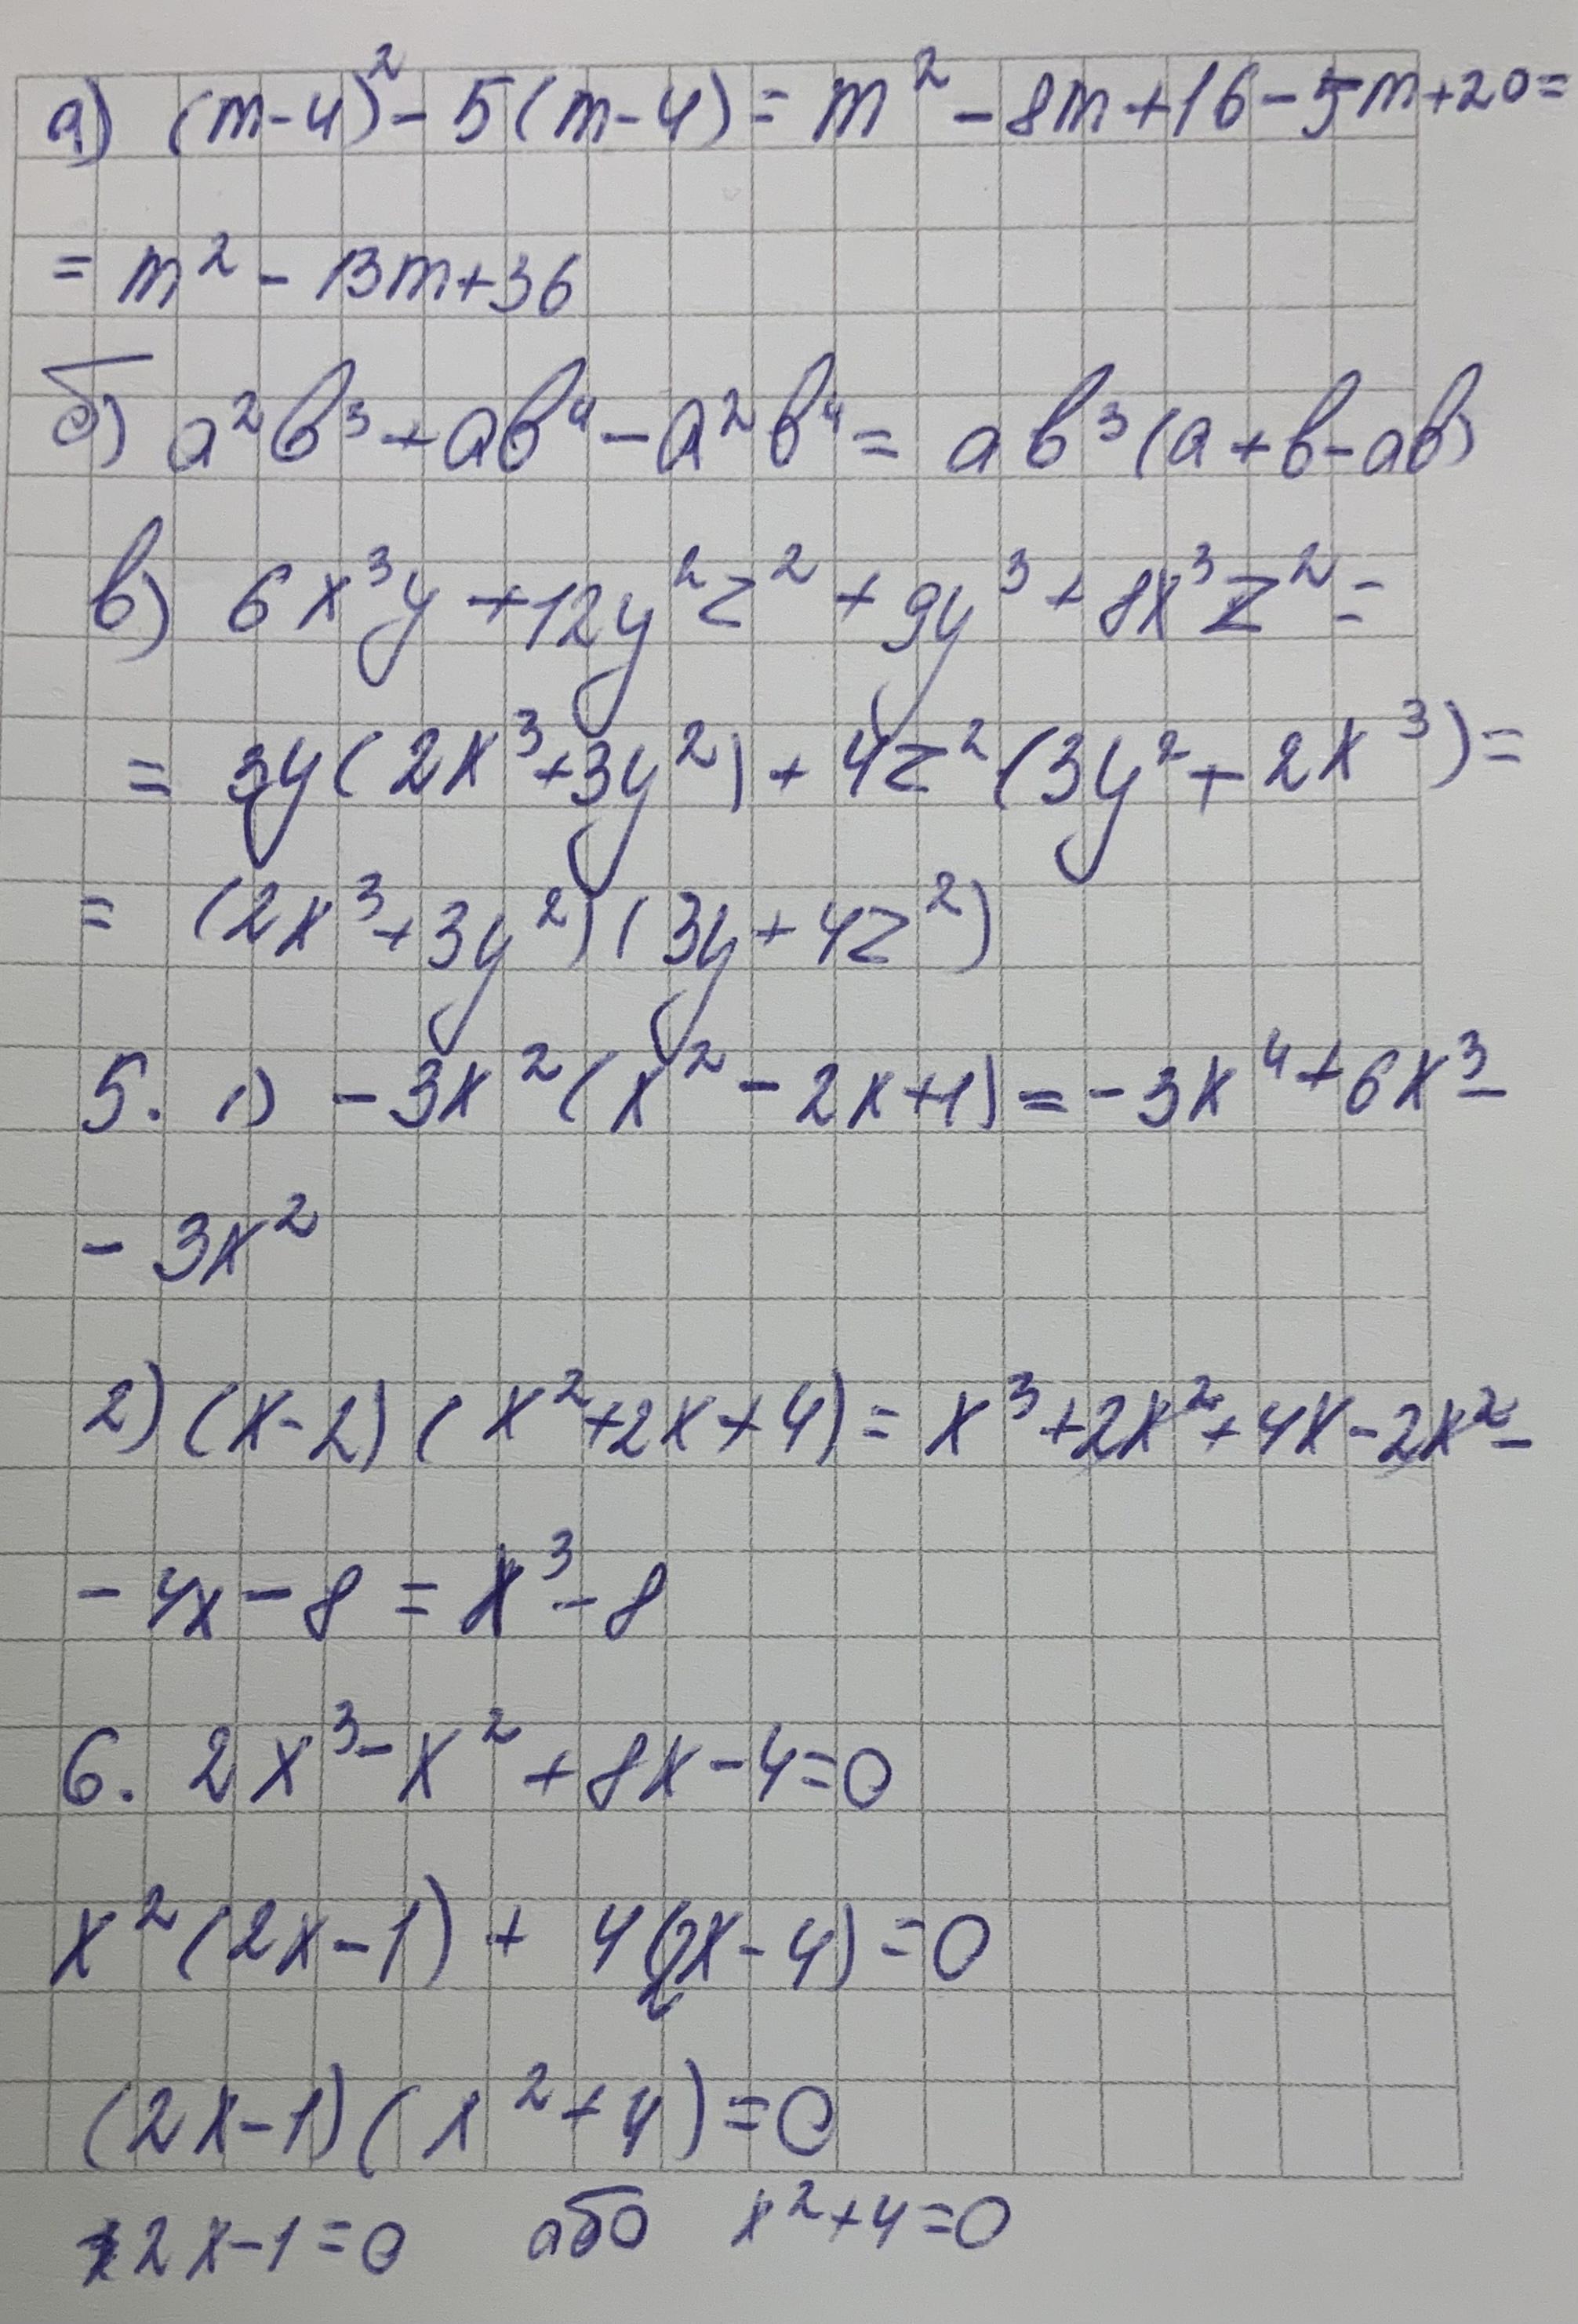 а) (m-4)² - 5(m-4) = m² - 8m + 16 - 5m + 20 =
= m² - 13m + 36
б) a²b³ + ab⁴ - a²b⁴ = ab³(a + b - ab)
в) 6x³y + 12y²z² + 9y³ + 8x³z² =
= 3y(2x³ + 3y²) + 4z²(3y² + 2x³) =
= (2x³ + 3y²)(3y + 4z²)
5. 1) -3x²(x² - 2x + 1) = -3x⁴ + 6x³ -
- 3x²
2) (x-2)(x² + 2x + 4) = x³ + 2x² + 4x - 2x² -
- 4x - 8 = x³ - 8
6. 2x³ - x² + 8x - 4 = 0
x²(2x - 1) + 4(2x - 4) = 0
(2x - 1)(x² + 4) = 0
2x - 1 = 0 або x² + 4 = 0